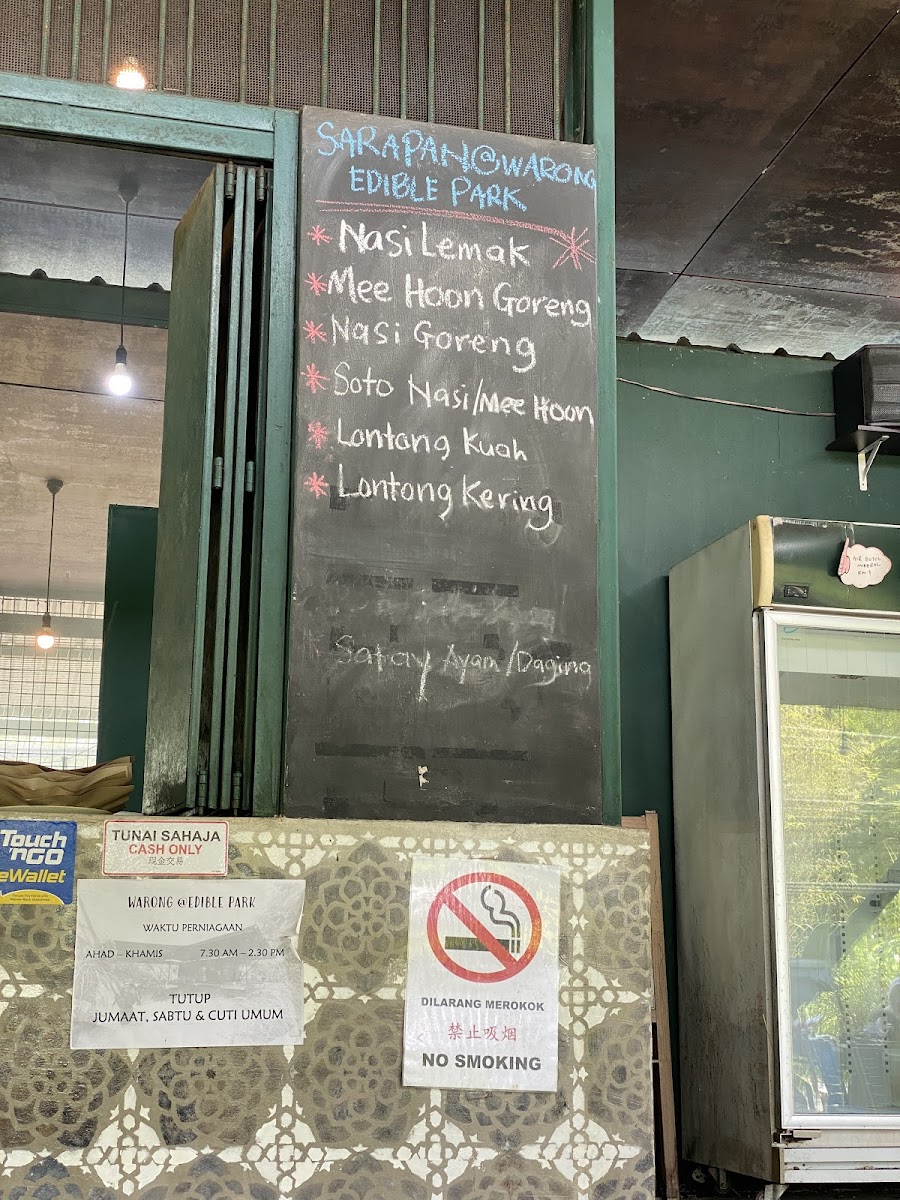 SARAPAN@WARONG
EDIBLE PARK
* Nasi Lemak *
* Mee Hoon Goreng
* Nasi Goreng
* Soto Nasi/Mee Hoon
* Lontong Kuah
* Lontong Kering
Satay Ayam/Daging
AIR BOTOL
MINERAL
RM 1
Touch
'nGO
eWallet
TUNAI SAHAJA
CASH ONLY
现金交易
WARONG @EDIBLE PARK
WAKTU PERNIAGAAN
AHAD – KHAMIS 7.30 AM – 2.30 PM
TUTUP
JUMAAT, SABTU & CUTI UMUM
DILARANG MEROKOK
禁止吸烟
NO SMOKING